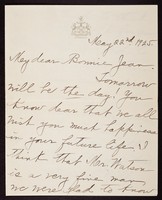 May 22nd 1925
My dear Bonnie Jean.
Tomorrow
will be the day! You
know dear that we all
wish you much happiness
in your future life. I
think that Mr. Watson
is a very fine man
we were glad to know